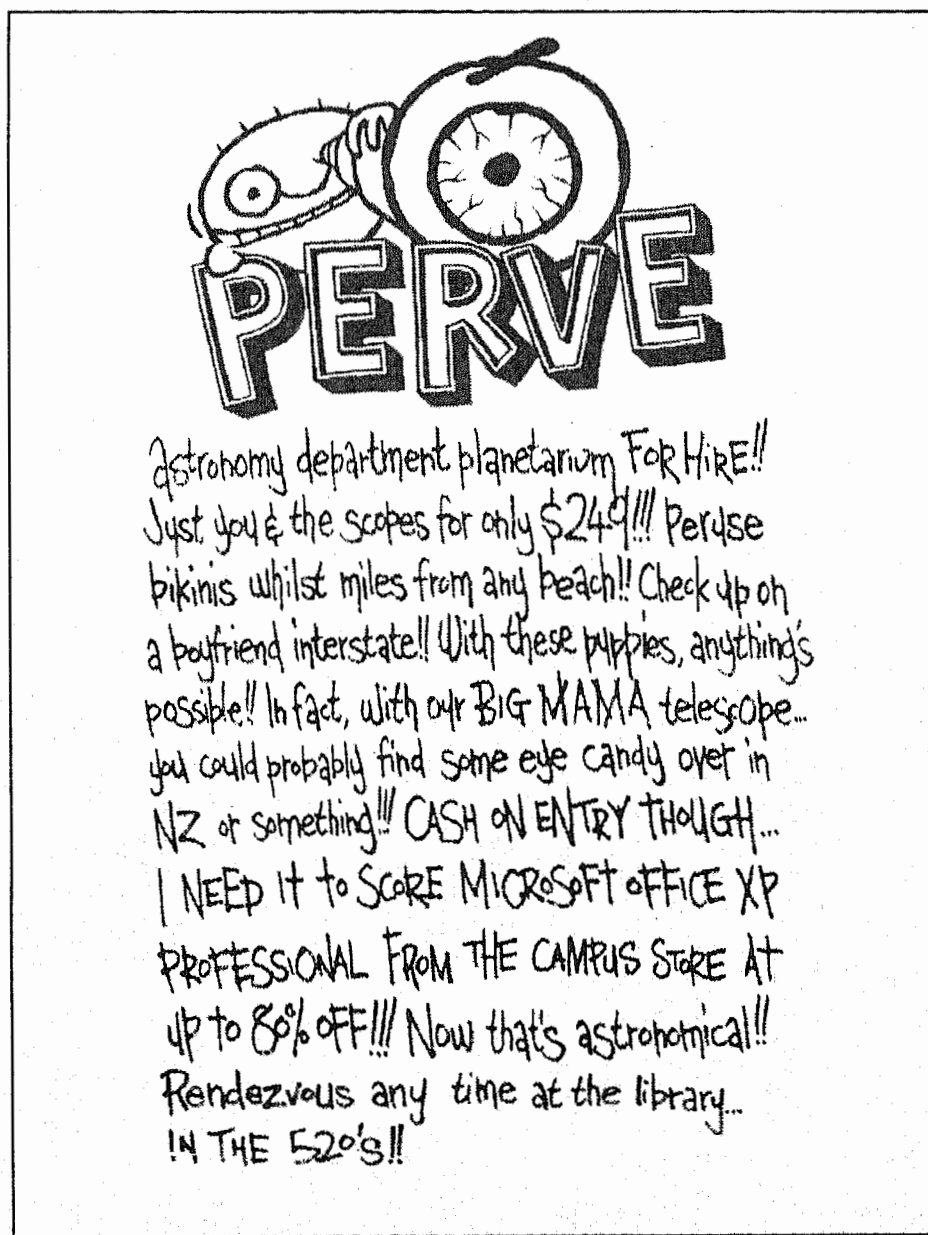 PERVE
astronomy department planetarium FOR HiRE!!
Just you & the scopes for only $249!!! Peruse
bikinis whilst miles from any beach!! Check up on
a boyfriend interstate!! With these puppies, anything's
possible!! In fact, with our BIG MAMA telescope...
you could probably find some eye candy over in
NZ or something!!! CASH ON ENTRY THOUGH...
I NEED IT to SCORE MICROSOFT OFFICE XP
PROFESSIONAL FROM THE CAMPUS STORE AT
up to 80% OFF!!! Now that's astronomical!!
Rendezvous any time at the library...
IN THE 520's!!